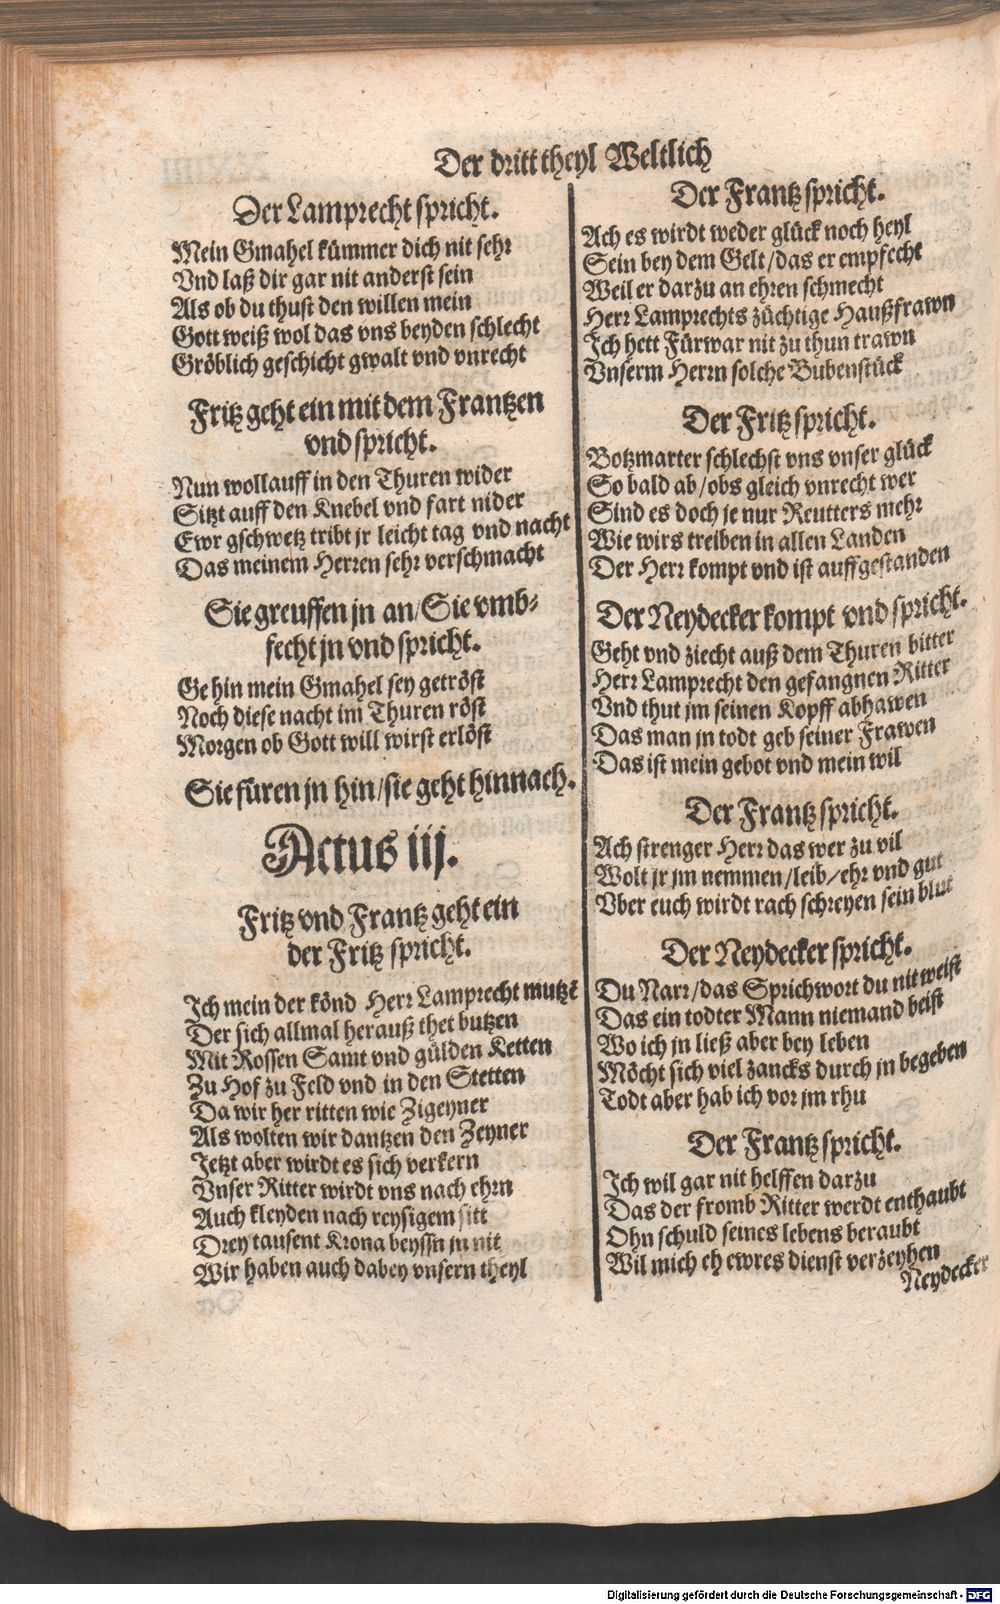 Der dritt theyl Weltlich
Der Lamprecht spricht.
Mein Gmahel kümmer dich nit sehr
Vnd laß dir gar nit anderst sein
Als ob du thust den willen mein
Gott weiß wol das vns beyden schlecht
Gröblich geschicht gwalt vnd vnrecht
Fritz geht ein mit dem Frantzen
vnd spricht.
Nun wollauff in den Thuren wider
Sitzt auff den Knebel vnd fart nider
Ewr gschwetz tribt jr leicht tag vnd nacht
Das meinem Herren sehr verschmacht
Sie greuffen jn an/Sie vmb-
fecht jn vnd spricht.
Ge hin mein Gmahel sey getröst
Noch diese nacht im Thuren röst
Morgen ob Gott will wirst erlöst
Sie füren jn hin/sie geht hinnach.
Actus iij.
Fritz vnd Frantz geht ein
der Fritz spricht.
Ich mein der könd Herr Lamprecht mutzē
Der sich allmal herauß thet butzen
Mit Rossen Samt vnd gülden Ketten
Zu Hof zu Feld vnd in den Stetten
Da wir her ritten wie Zigeyner
Als wolten wir dantzen den Zeyner
Jetzt aber wirdt es sich verkern
Vnser Ritter wirdt vns nach ehrn
Auch kleyden nach reysigem sitt
Drey tausent Krona beyssn jn nit
Wir haben auch dabey vnsern theyl
Der Frantz spricht.
Ach es wirdt weder glück noch heyl
Sein bey dem Gelt/das er empfecht
Weil er darzu an ehren schmecht
Herr Lamprechts züchtige Haußfrawn
Ich hett Fürwar nit zu thun trawn
Vnserm Herrn solche Bubenstück
Der Fritz spricht.
Botzmarter schlechst vns vnser glück
So bald ab/obs gleich vnrecht wer
Sind es doch je nur Reutters mehr
Wie wirs treiben in allen Landen
Der Herr kompt vnd ist auffgestanden
Der Neydecker kompt vnd spricht.
Geht vnd ziecht auß dem Thuren bitter
Herr Lamprecht den gefangnen Ritter
Vnd thut jm seinen Kopff abhawen
Das man jn todt geb seiner Frawen
Das ist mein gebot vnd mein wil
Der Frantz spricht.
Ach strenger Herr das wer zu vil
Wolt jr jm nemmen/leib/ehr vnd gut
Vber euch wirdt rach schreyen sein blut
Der Neydecker spricht.
Du Narr/das Sprichwort du nit weist
Das ein todter Mann niemand beist
Wo ich jn ließ aber bey leben
Möcht sich viel zancks durch jn begeben
Todt aber hab ich vor jm rhu
Der Frantz spricht.
Ich wil gar nit helffen darzu
Das der fromb Ritter werdt enthaubt
Ohn schuld seines lebens beraubt
Wil mich eh ewres dienst verzeyhen
Neydecker
Digitalisierung gefördert durch die Deutsche Forschungsgemeinschaft - DFG